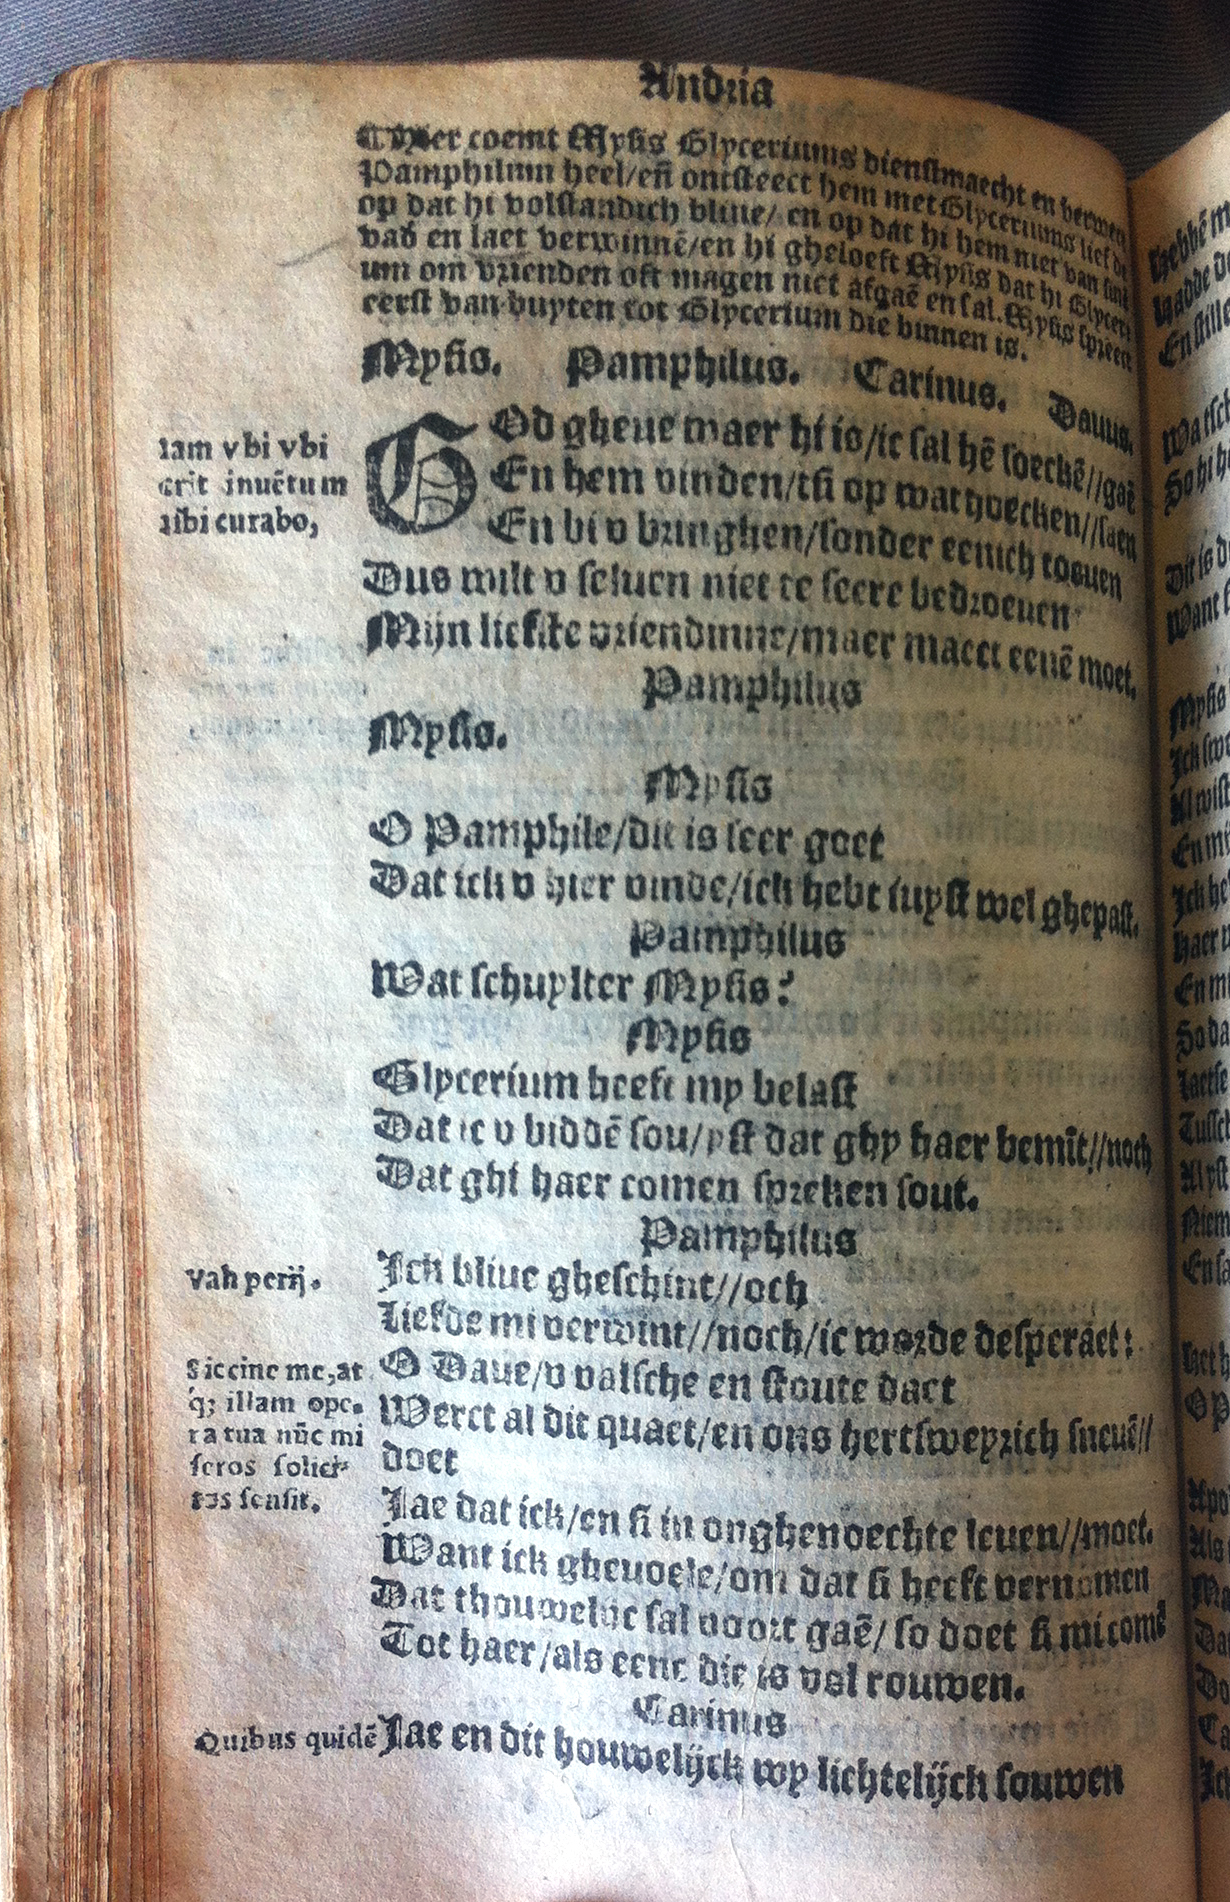 Andria
Hier coemt Mysis Glyceriums dienstmaecht en verwen
Pamphilum heel/en̄ ontsteect hem met Glyceriums lief de
op dat hi volstandich bliue/ en op dat hi hem niet van sinē
vad en laet verwinnē/en hi gheloeft Mysis dat hi Glyceri
um om vrienden oft magen niet afgaē en sal. Mysis spreect
eerst van buyten tot Glycerium die binnen is.
Mysis. Pamphilus. Carinus. Dauus.
Iam vbi vbi
erit inuētum
tibi curabo,
GOd gheue waer hi is/ic sal hē soeckē//gaē
En hem vinden/tsi op wat hoecken//saen
En bi v bringhen/sonder eenich toeuen
Dus wilt v seluen niet te seere bedroeuen
Mijn liefste vriendinne/maer maect eenē moet.
Pamphilus
Mysis.
Mysis
O Pamphile/dit is seer goet
Dat ick v hier vinde/ick hebt iuyst wel ghepast.
Pamphilus
Wat schuylter Mysis?
Mysis
Glycerium heeft my belast
Dat ic v biddē sou/yst dat ghy haer bemīt//noch
Dat ghi haer comen spreken sout.
Pamphilus
Vah perij.
Ick bliue gheschint//och
Liefde mi verwint//noch/ic worde desperaet:
Siccine me,at
q; illam ope-
ra tua nūc mi
seros solici-
tos sensit.
O Daue/v valsche en stoute daet
Werct al dit quaet/en ons hertsweyrich sneuē//
doet
Jae dat ick/en si in onghenoechte leuen//moet.
Want ick gheuoele/om dat si heeft vernomen
Dat thouwelijc sal voort gaē/ so doet si mi comē
Tot haer/als eene die is vol rouwen.
Carinus
Quibus quidē
Jae en dit houwelijck wy lichtelijck souwen